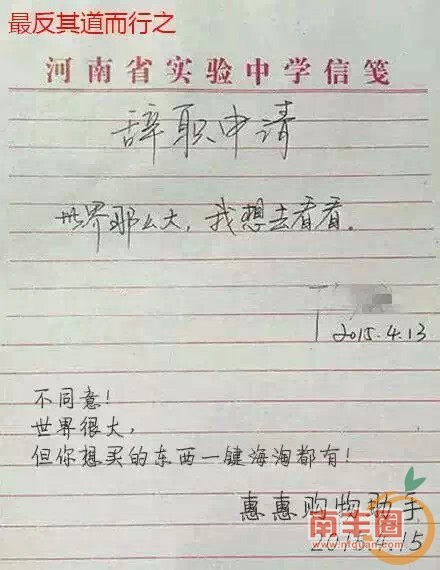 最反其道而行之
河南省实验中学信笺
辞职申请
世界那么大，我想去看看。
2015.4.13
不同意！
世界很大，
但你想买的东西一键海淘都有！
惠惠购物助手
2015.4.15
南丰圈
www.nfquan.com